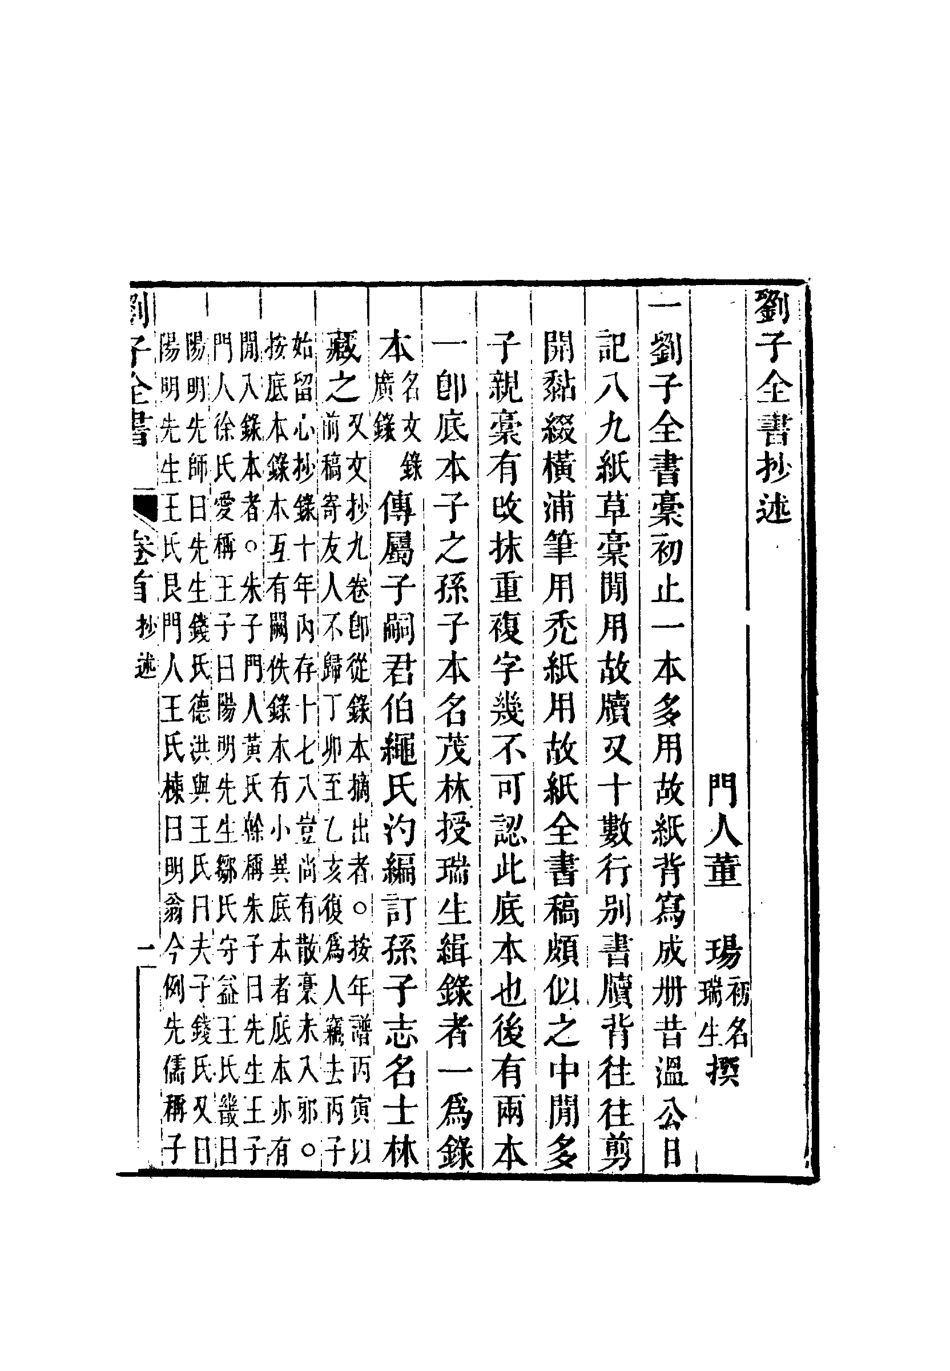 劉子全書抄述
門人董 瑒初名瑞生撰
一劉子全書稾初止一本多用故紙背寫成册昔溫公日
記八九紙草稾閒用故牘又十數行别書牘背往往剪
開黏綴橫浦筆用禿紙用故紙全書稿頗似之中閒多
子親稾有改抹重複字幾不可認此底本也後有兩本
一卽底本子之孫子本名茂林授瑞生緝錄者一爲錄
本名文錄廣錄傳屬子嗣君伯繩氏汋編訂孫子志名士林
藏之又文抄九卷卽從錄本摘出者。按年譜丙寅以
前稿寄友人不歸丁卯至乙亥後爲人竊去丙子
始留心抄錄十年內存十七八豈尚有散稾未入邪。
按底本錄本互有闕佚錄本有小異底本者底本亦有
閒入錄本者。朱子門人黃氏榦稱朱子曰先生王子
門人徐氏愛稱王子曰陽明先生鄒氏守益王氏畿曰
陽明先師曰先生錢氏德洪與王氏曰夫子錢氏又曰
陽明先生王氏艮門人王氏棟曰明翁今例先儒稱子
劉子全書 卷首 抄述 一